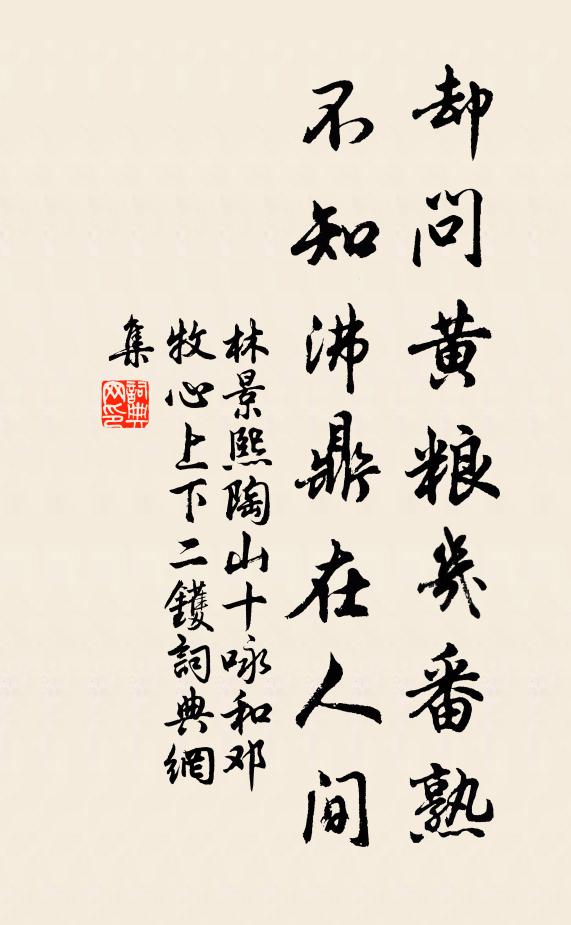 却问黄粮几番熟
不知沸鼎在人间
林景熙陶山十咏和邓
牧心上下二鑊詞典網
集
詞典网印